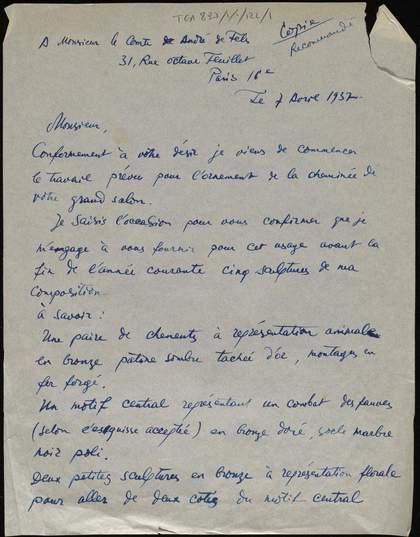 TGA 897/1/1/122/1
Copie
Recommandé
A Monsieur le Comte André de Fels
31, Rue octave Feuillet
Paris 16e
Le 7 Avril 1937
Monsieur,
Conformement à votre désir je viens de commencer
le travail prévu pour l'ornement de la cheminée de
votre grand salon.
Je saisis l'occasion pour vous confirmer que je
m'engage à vous fournir pour cet usage avant la
fin de l'année courante cinq sculptures de ma
composition.
à savoir :
Une paire de chenents à représentation animale
en bronze patine sombre tachée d'or, montages en
fer forgé.
Un motif central représentant un combat des fauves
(selon l'esquisse acceptée) en bronze doré, socle marbre
noir poli.
Deux petites sculptures en bronze à représentation florale
pour aller de deux cotés du motif central